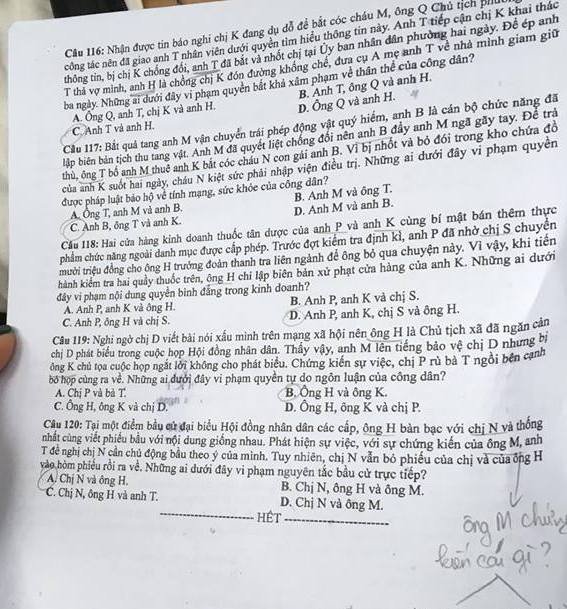 Câu 116: Nhận được tin báo nghi chị K đang dụ dỗ để bắt cóc cháu M, ông Q Chủ tịch
công tác nên đã giao anh T nhân viên dưới quyền tìm hiểu thông tin này. Anh T tiếp cận chị K khai thác
thông tin, bị chị K chống đối, anh T đã bắt và nhốt chị tại Ủy ban nhân dân phường hai ngày. Để ép anh
T thả vợ mình, anh H là chồng chị K đón đường khống chế, đưa cụ A mẹ anh T về nhà mình giam giữ
ba ngày. Những ai dưới đây vi phạm quyền bất khả xâm phạm về thân thể của công dân?
A. Ông Q, anh T, chị K và anh H. B. Anh T, ông Q và anh H.
C. Anh T và anh H. D. Ông Q và anh H.
Câu 117: Bắt quả tang anh M vận chuyển trái phép động vật quý hiếm, anh B là cán bộ chức năng đã
lập biên bản tịch thu tang vật. Anh M đã quyết liệt chống đối nên anh B đẩy anh M ngã gãy tay. Để trả
thù, ông T bố anh M thuê anh K bắt cóc cháu N con gái anh B. Vì bị nhốt và bỏ đói trong kho chứa đồ
của anh K suốt hai ngày, cháu N kiệt sức phải nhập viện điều trị. Những ai dưới đây vi phạm quyền
được pháp luật bảo hộ về tính mạng, sức khỏe của công dân?
A. Ông T, anh M và anh B. B. Anh M và ông T.
C. Anh B, ông T và anh K. D. Anh M và anh B.
Câu 118: Hai cửa hàng kinh doanh thuốc tân dược của anh P và anh K cùng bí mật bán thêm thực
phẩm chức năng ngoài danh mục được cấp phép. Trước đợt kiểm tra định kì, anh P đã nhờ chị S chuyển
mười triệu đồng cho ông H trưởng đoàn thanh tra liên ngành để ông bỏ qua chuyện này. Vì vậy, khi tiến
hành kiểm tra hai quầy thuốc trên, ông H chỉ lập biên bản xử phạt cửa hàng của anh K. Những ai dưới
đây vi phạm nội dung quyền bình đẳng trong kinh doanh?
A. Anh P, anh K và ông H. B. Anh P, anh K và chị S.
C. Anh P, ông H và chị S. D. Anh P, anh K, chị S và ông H.
Câu 119: Nghi ngờ chị D viết bài nói xấu mình trên mạng xã hội nên ông H là Chủ tịch xã đã ngăn cản
chị D phát biểu trong cuộc họp Hội đồng nhân dân. Thấy vậy, anh M lên tiếng bảo vệ chị D nhưng bị
ông K chủ tọa cuộc họp ngắt lời không cho phát biểu. Chứng kiến sự việc, chị P rủ bà T ngồi bên cạnh
bỏ họp cùng ra về. Những ai dưới đây vi phạm quyền tự do ngôn luận của công dân?
A. Chị P và bà T. B. Ông H và ông K.
C. Ông H, ông K và chị D. D. Ông H, ông K và chị P.
Câu 120: Tại một điểm bầu cử đại biểu Hội đồng nhân dân các cấp, ông H bàn bạc với chị N và thống
nhất cùng viết phiếu bầu với nội dung giống nhau. Phát hiện sự việc, với sự chứng kiến của ông M, anh
T đề nghị chị N cần chủ động bầu theo ý của mình. Tuy nhiên, chị N vẫn bỏ phiếu của chị và của ông H
vào hòm phiếu rồi ra về. Những ai dưới đây vi phạm nguyên tắc bầu cử trực tiếp?
A. Chị N và ông H. B. Chị N, ông H và ông M.
C. Chị N, ông H và anh T. D. Chị N và ông M.
HẾT
ông M chứng
kiến cái gì?